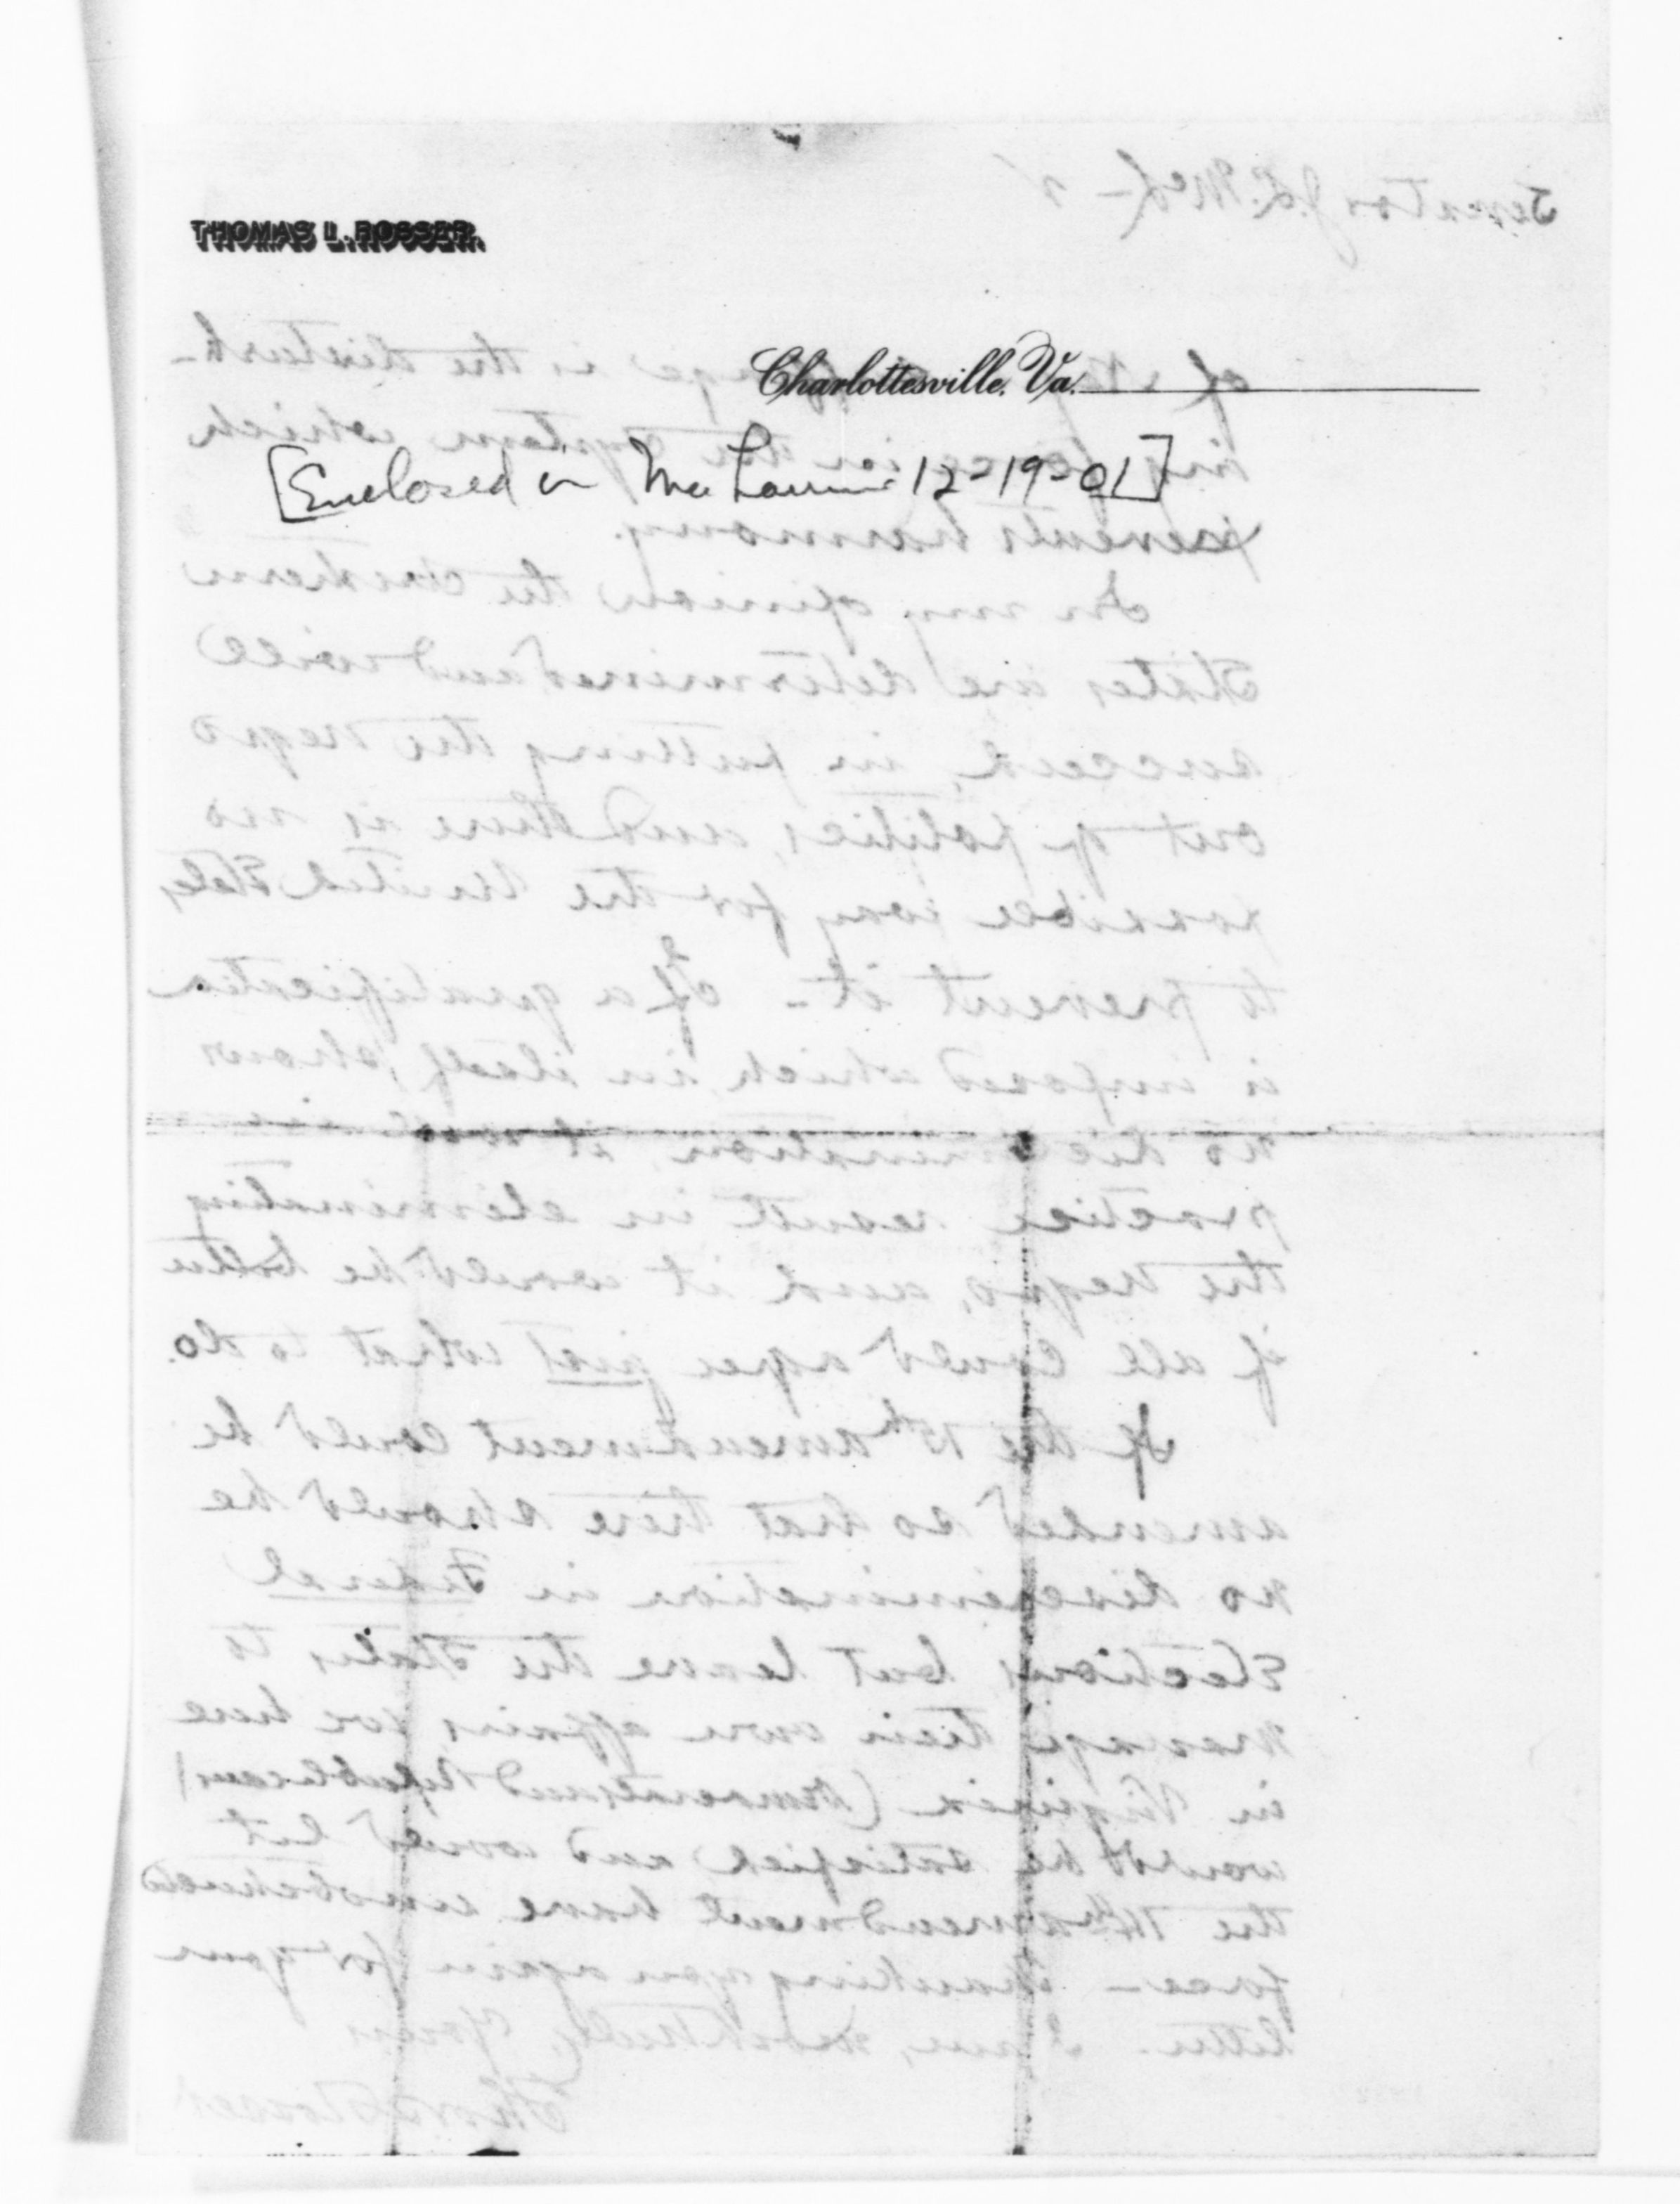 THOMAS L. ROSSER.
Senator J. L. McL- 2
Charlottesville, Va.
[Enclosed in McLaurin 12-19-01]
of suffrage is the disturb-
ing in the system which
prevents harmony.
In my opinion the Southern
States are determined, and will
succeed, in putting the negro
out of politics, and there is no
possible way for the United States
to prevent it - If a qualification
is imposed which, in itself, shows
no discrimination, it
practice result in eliminating
the negro, and it would be better
if all could agree just what to do.
If the 15th amendment could be
amended so that there should be
no discrimination in Federal
Elections, but leave the States to
manage their own affairs, we here
in Virginia (Democrats and Republicans)
would be satisfied and would let
the 14th amendment have unobstructed
force - Thanking you again for your
letter. I am, Yours
Rosser